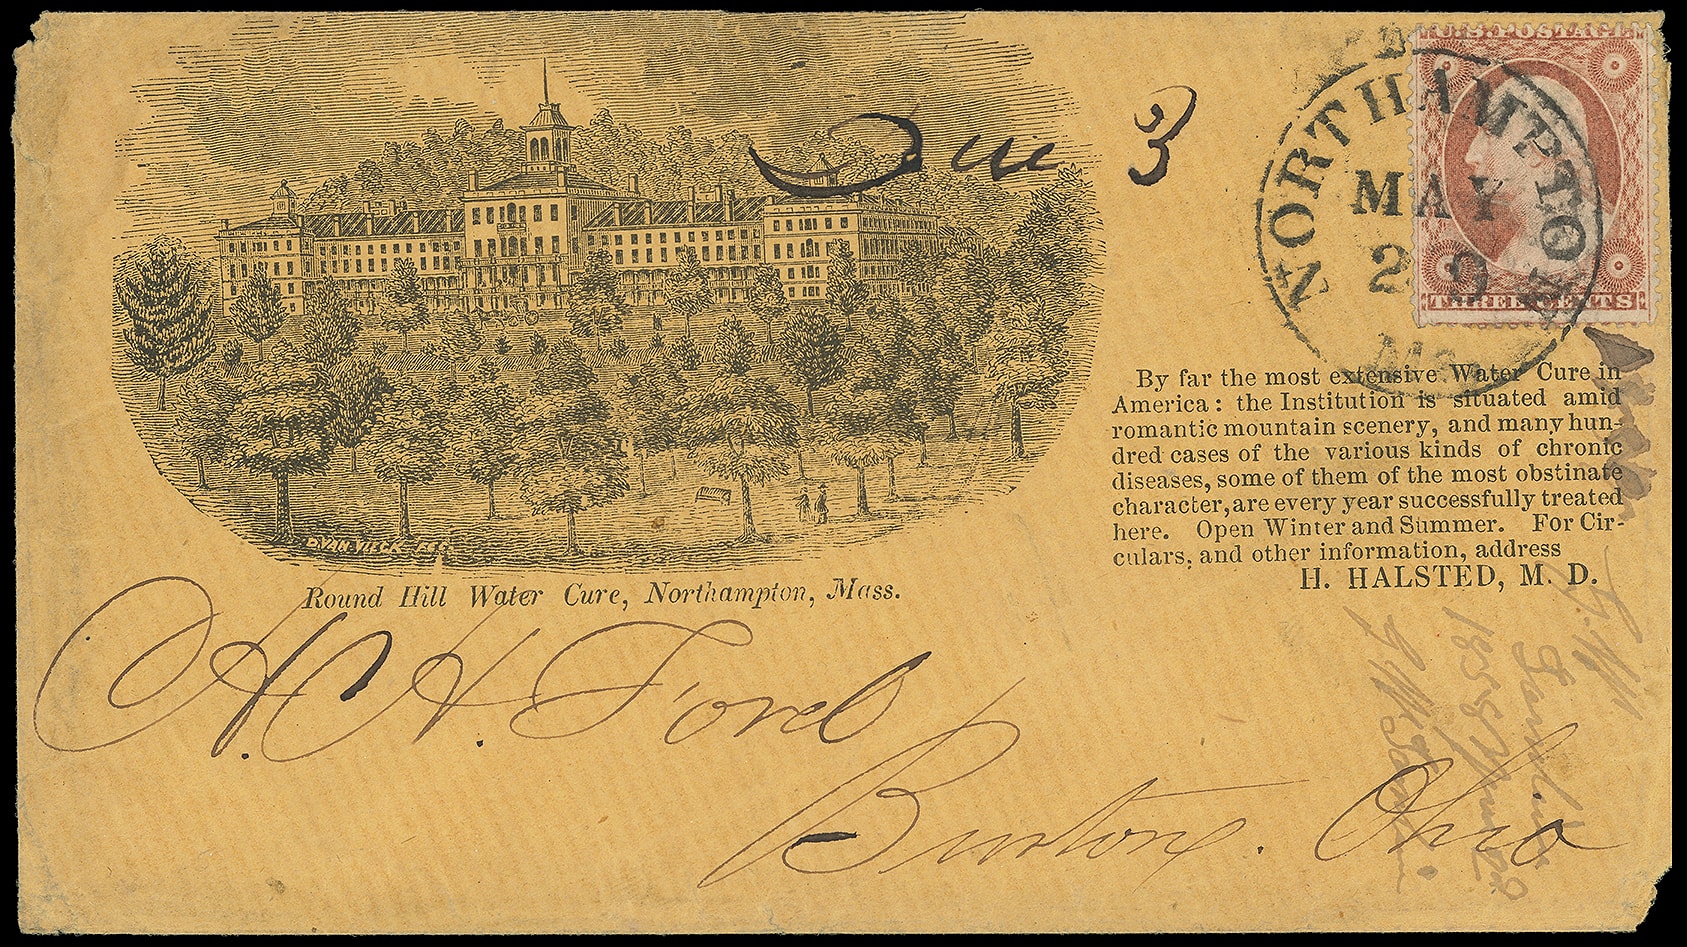 Due 3
U.S. POSTAGE
THREE CENTS
NORTHAMPTON
MAY
29
Mass
By far the most extensive Water Cure in
America: the Institution is situated amid
romantic mountain scenery, and many hun-
dred cases of the various kinds of chronic
diseases, some of them of the most obstinate
character, are every year successfully treated
here. Open Winter and Summer. For Cir-
culars, and other information, address
H. HALSTED, M. D.
D. VAN VLECK FEC.
Round Hill Water Cure, Northampton, Mass.
A. H. Ford
Burton. Ohio
1858